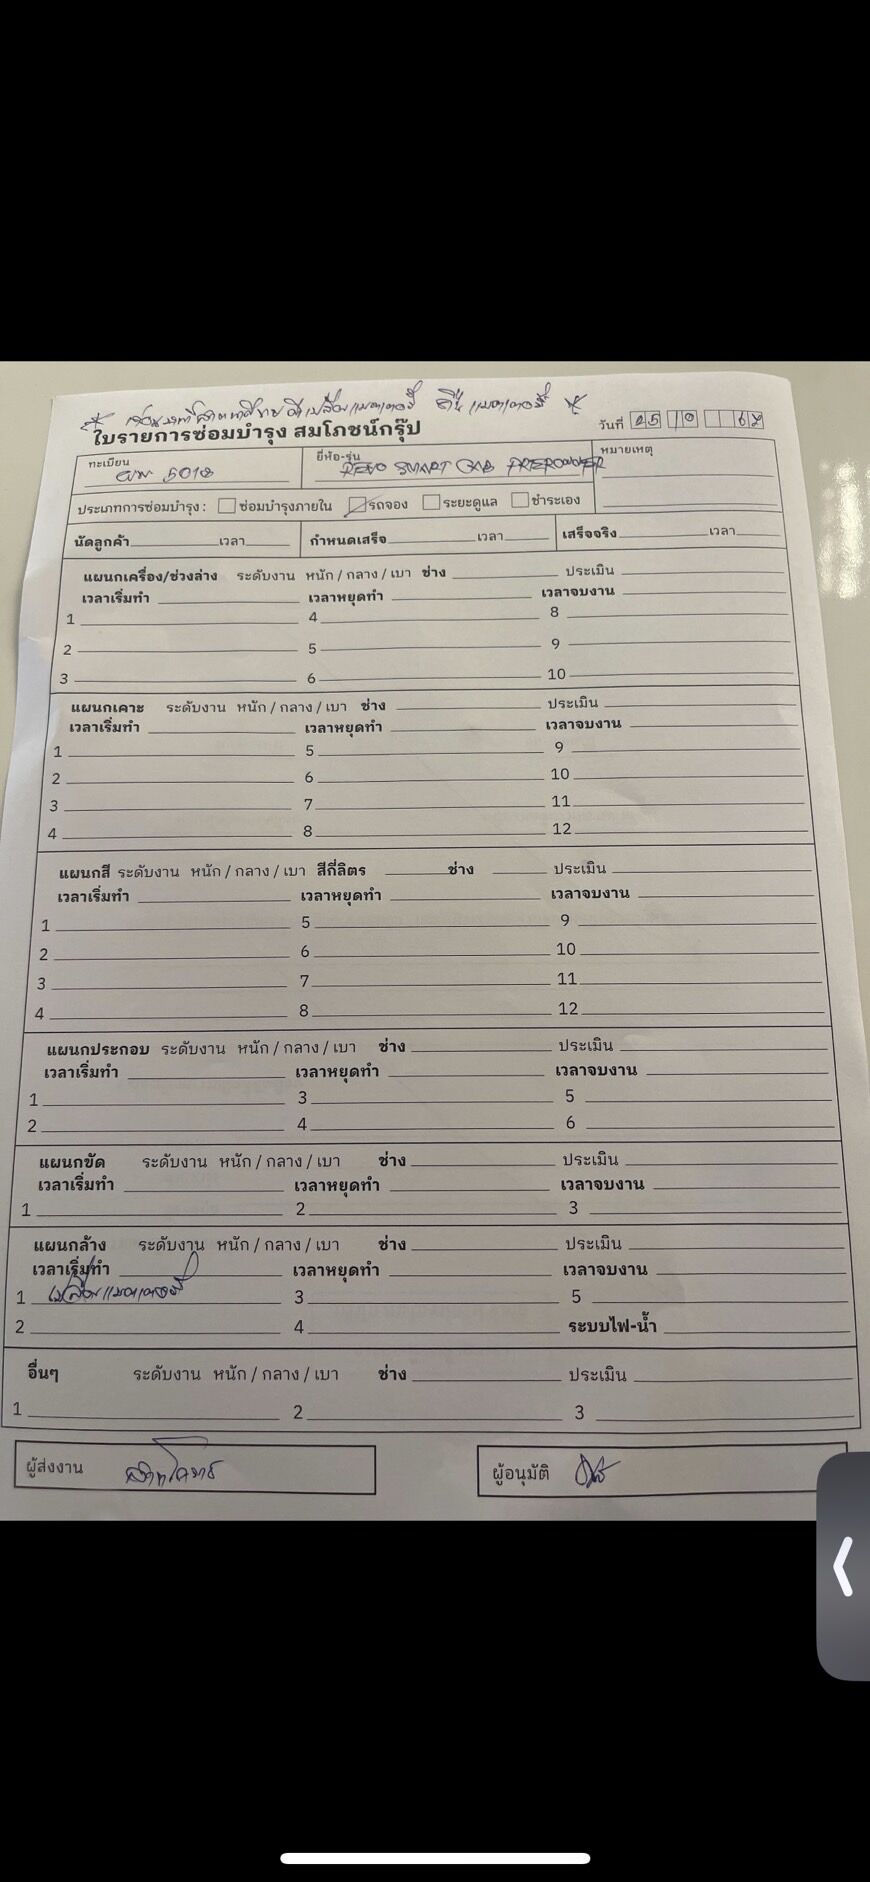 ใบรายการซ่อมบำรุง สมโภชน์กรุ๊ป
วันที่ 25
ทะเบียน 5018
ยี่ห้อ-รุ่น REVO SMART CAB PRERUNNER
หมายเหตุ
ประเภทการซ่อมบำรุง : ซ่อมบำรุงภายใน รถจอง ระยะดูแล ชำระเอง
นัดลูกค้า เวลา กำหนดเสร็จ เวลา เสร็จจริง เวลา
แผนกเครื่อง/ช่วงล่าง ระดับงาน หนัก / กลาง / เบา ช่าง ประเมิน
เวลาเริ่มทำ เวลาหยุดทำ เวลาจบงาน
1 4 8
2 5 9
3 6 10
แผนกเคาะ ระดับงาน หนัก / กลาง / เบา ช่าง ประเมิน
เวลาเริ่มทำ เวลาหยุดทำ เวลาจบงาน
1 5 9
2 6 10
3 7 11
4 8 12
แผนกสี ระดับงาน หนัก / กลาง / เบา สีกี่ลิตร ช่าง ประเมิน
เวลาเริ่มทำ เวลาหยุดทำ เวลาจบงาน
1 5 9
2 6 10
3 7 11
4 8 12
แผนกประกอบ ระดับงาน หนัก / กลาง / เบา ช่าง ประเมิน
เวลาเริ่มทำ เวลาหยุดทำ เวลาจบงาน
1 3 5
2 4 6
แผนกขัด ระดับงาน หนัก / กลาง / เบา ช่าง ประเมิน
เวลาเริ่มทำ เวลาหยุดทำ เวลาจบงาน
1 2 3
แผนกล้าง ระดับงาน หนัก / กลาง / เบา ช่าง ประเมิน
เวลาเริ่มทำ เวลาหยุดทำ เวลาจบงาน
1 เปลี่ยนแบตเตอรี่ 3 5
2 4 ระบบไฟ-น้ำ
อื่นๆ ระดับงาน หนัก / กลาง / เบา ช่าง ประเมิน
1 2 3
ผู้ส่งงาน
ผู้อนุมัติ